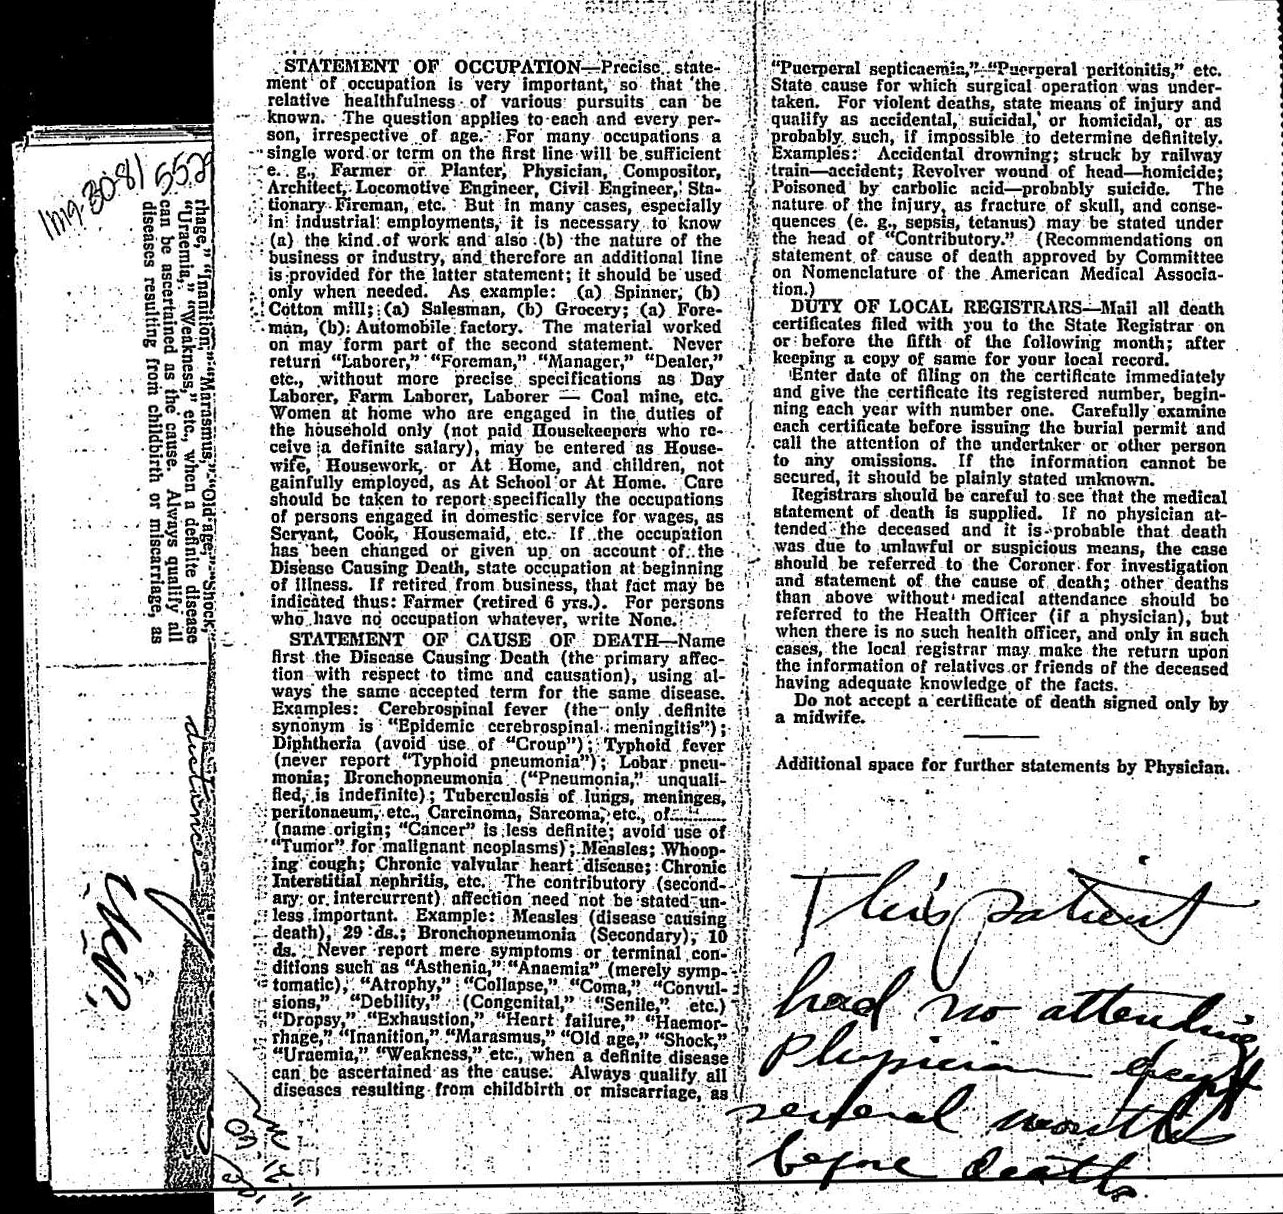 STATEMENT OF OCCUPATION—Precise state-
ment of occupation is very important, so that the
relative healthfulness of various pursuits can be
known. The question applies to each and every per-
son, irrespective of age. For many occupations a
single word or term on the first line will be sufficient
e. g., Farmer or Planter, Physician, Compositor,
Architect, Locomotive Engineer, Civil Engineer, Sta-
tionary Fireman, etc. But in many cases, especially
in industrial employments, it is necessary to know
(a) the kind of work and also (b) the nature of the
business or industry, and therefore an additional line
is provided for the latter statement; it should be used
only when needed. As example: (a) Spinner, (b)
Cotton mill; (a) Salesman, (b) Grocery; (a) Fore-
man, (b) Automobile factory. The material worked
on may form part of the second statement. Never
return "Laborer," "Foreman," "Manager," "Dealer,"
etc., without more precise specifications as Day
Laborer, Farm Laborer, Laborer — Coal mine, etc.
Women at home who are engaged in the duties of
the household only (not paid Housekeepers who re-
ceive a definite salary), may be entered as House-
wife, Housework, or At Home, and children, not
gainfully employed, as At School or At Home. Care
should be taken to report specifically the occupations
of persons engaged in domestic service for wages, as
Servant, Cook, Housemaid, etc. If the occupation
has been changed or given up on account of the
Disease Causing Death, state occupation at beginning
of illness. If retired from business, that fact may be
indicated thus: Farmer (retired 6 yrs.). For persons
who have no occupation whatever, write None.
STATEMENT OF CAUSE OF DEATH—Name
first the Disease Causing Death (the primary affec-
tion with respect to time and causation), using al-
ways the same accepted term for the same disease.
Examples: Cerebrospinal fever (the only definite
synonym is "Epidemic cerebrospinal meningitis");
Diphtheria (avoid use of "Croup"); Typhoid fever
(never report "Typhoid pneumonia"); Lobar pneu-
monia; Bronchopneumonia ("Pneumonia," unquali-
fied, is indefinite); Tuberculosis of lungs, meninges,
peritonaeum, etc., Carcinoma, Sarcoma, etc., of..........
(name origin; "Cancer" is less definite; avoid use of
"Tumor" for malignant neoplasms); Measles; Whoop-
ing cough; Chronic valvular heart disease; Chronic
Interstitial nephritis, etc. The contributory (second-
ary or intercurrent) affection need not be stated un-
less important. Example: Measles (disease causing
death), 29 ds.; Bronchopneumonia (Secondary), 10
ds. Never report mere symptoms or terminal con-
ditions such as "Asthenia," "Anaemia" (merely symp-
tomatic), "Atrophy," "Collapse," "Coma," "Convul-
sions," "Debility," (Congenital," "Senile," etc.)
"Dropsy," "Exhaustion," "Heart failure," "Haemor-
rhage," "Inanition," "Marasmus," "Old age," "Shock,"
"Uraemia," "Weakness," etc., when a definite disease
can be ascertained as the cause. Always qualify all
diseases resulting from childbirth or miscarriage, as
"Puerperal septicaemia," "Puerperal peritonitis," etc.
State cause for which surgical operation was under-
taken. For violent deaths, state means of injury and
qualify as accidental, suicidal, or homicidal, or as
probably such, if impossible to determine definitely.
Examples: Accidental drowning; struck by railway
train—accident; Revolver wound of head—homicide;
Poisoned by carbolic acid—probably suicide. The
nature of the injury, as fracture of skull, and conse-
quences (e. g., sepsis, tetanus) may be stated under
the head of "Contributory." (Recommendations on
statement of cause of death approved by Committee
on Nomenclature of the American Medical Associa-
tion.)
DUTY OF LOCAL REGISTRARS—Mail all death
certificates filed with you to the State Registrar on
or before the fifth of the following month; after
keeping a copy of same for your local record.
Enter date of filing on the certificate immediately
and give the certificate its registered number, begin-
ning each year with number one. Carefully examine
each certificate before issuing the burial permit and
call the attention of the undertaker or other person
to any omissions. If the information cannot be
secured, it should be plainly stated unknown.
Registrars should be careful to see that the medical
statement of death is supplied. If no physician at-
tended the deceased and it is probable that death
was due to unlawful or suspicious means, the case
should be referred to the Coroner for investigation
and statement of the cause of death; other deaths
than above without medical attendance should be
referred to the Health Officer (if a physician), but
when there is no such health officer, and only in such
cases, the local registrar may make the return upon
the information of relatives or friends of the deceased
having adequate knowledge of the facts.
Do not accept a certificate of death signed only by
a midwife.
Additional space for further statements by Physician.
This patient
had no attending
Physician except
several months
before death.
rhage," "Inanition," "Marasmus," "Old age," "Shock,"
"Uraemia," "Weakness," etc., when a definite disease
can be ascertained as the cause. Always qualify all
diseases resulting from childbirth or miscarriage, as